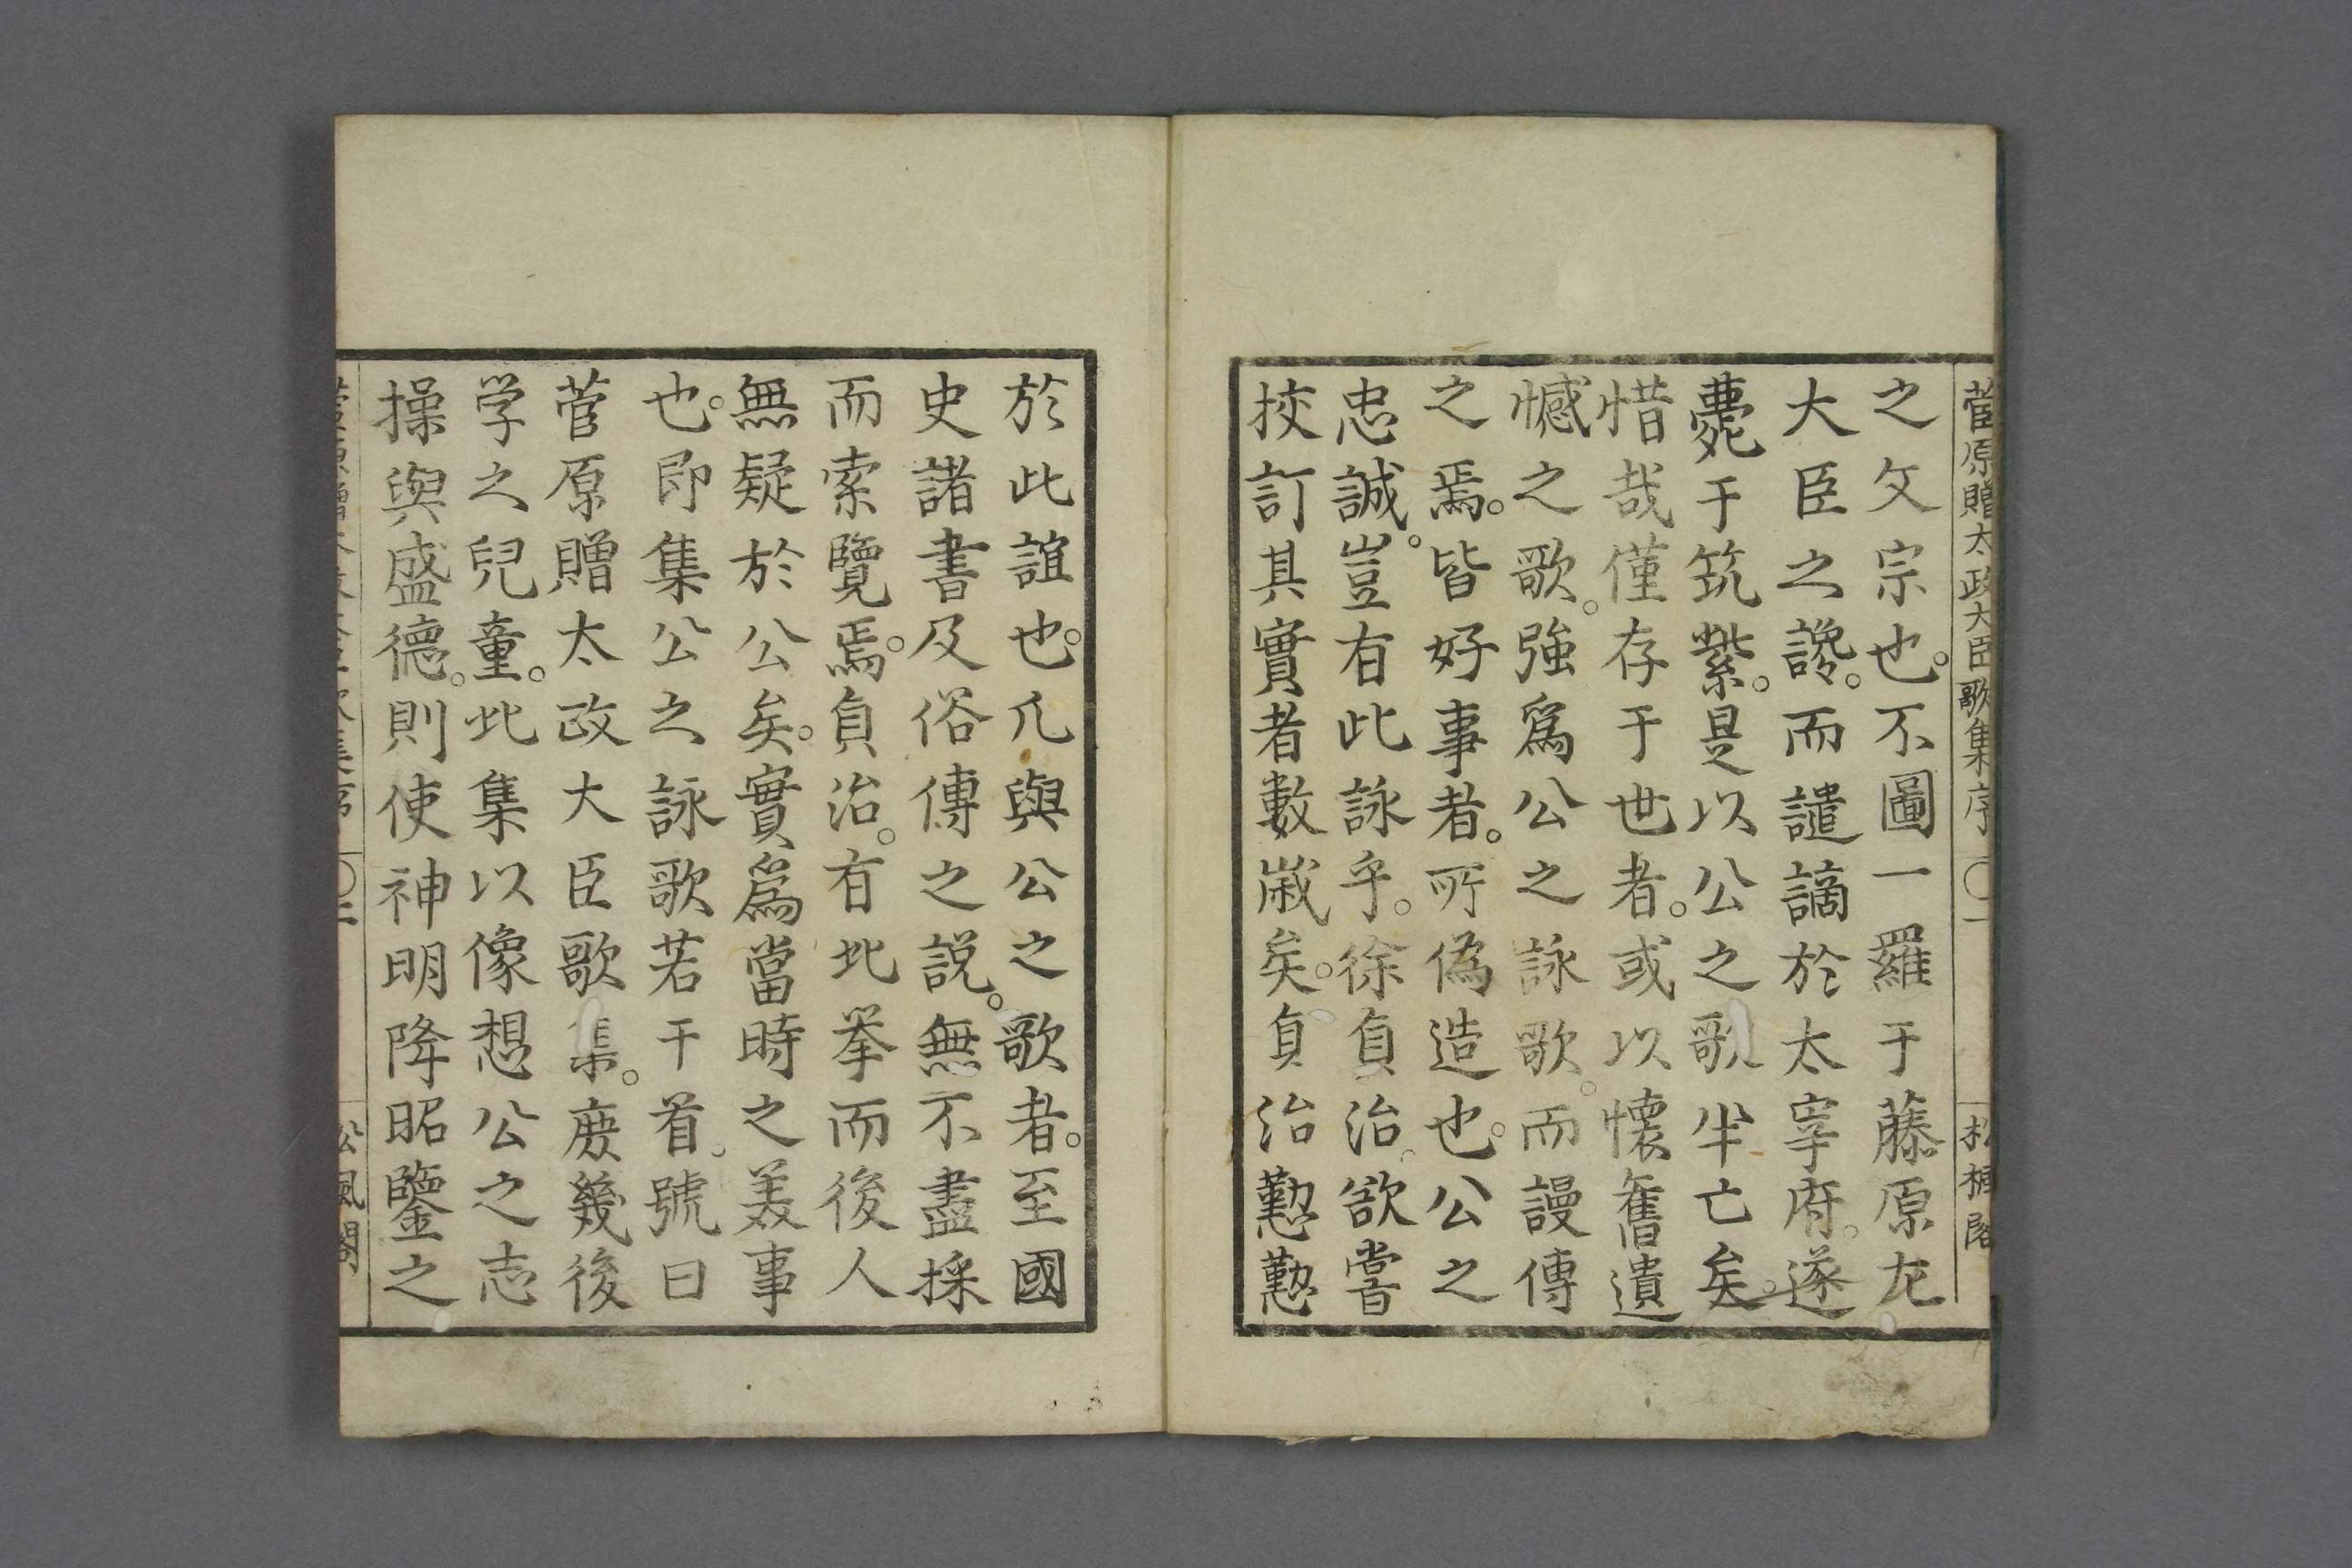 菅原贈太政大臣歌集序　〇一
之文宗也。不圖一羅于藤原左
大臣之讒。而譴謫於太宰府。遂
薨于筑紫。是以公之歌半亡矣。
惜哉僅存于世者。或以懷舊遺
憾之歌。強爲公之詠歌。而謾傳
之焉。皆好事者。所偽造也。公之
忠誠。豈有此詠乎。徐負治。欲嘗
挍訂其實者數歲矣。負治懃懃
於此誼也。凡與公之歌者。至國
史諸書及俗傳之説。無不盡採
而索覽焉。負治。有此挙而後人
無疑於公矣。實爲當時之美事
也。即集公之詠歌若干首。號曰
菅原贈太政大臣歌集。庶幾後
学之兒童。此集以像想公之志
操與盛德。則使神明降昭鑒之
松風閣